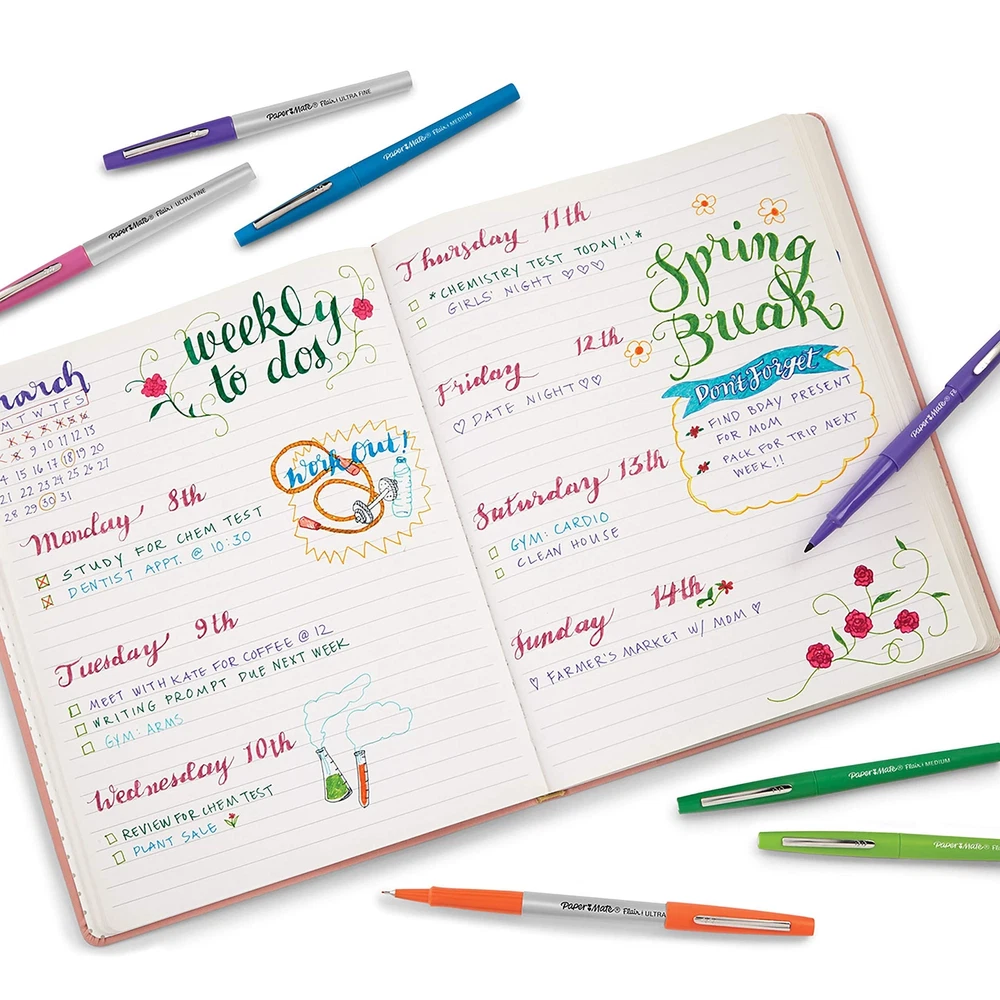 Paper Mate® Flair. | ULTRA FINE
Paper Mate® Flair. | MEDIUM
Paper Mate® Flair. | ULTRA FINE
weekly
to dos
M T W T F S
9 10 11 12 13
15 16 17 18 19 20
21 22 23 24 25 26 27
28 29 30 31
Work Out!
Monday 8th
STUDY FOR CHEM TEST
DENTIST APPT. @ 10:30
Tuesday 9th
MEET WITH KATE FOR COFFEE @ 12
WRITING PROMPT DUE NEXT WEEK
GYM: ARMS
Wednesday 10th
REVIEW FOR CHEM TEST
PLANT SALE
Thursday 11th
*CHEMISTRY TEST TODAY!!*
GIRLS' NIGHT ♡♡♡
Friday 12th
♡ DATE NIGHT ♡♡
Saturday 13th
GYM: CARDIO
CLEAN HOUSE
Sunday 14th
♡ FARMER'S MARKET W/ MOM ♡
Spring
Break
Don't Forget
FIND BDAY PRESENT
FOR MOM
PACK FOR TRIP NEXT
WEEK!!
Paper Mate®
Paper Mate® Flair. | MEDIUM
Paper Mate®
Paper Mate® Flair. | ULTRA